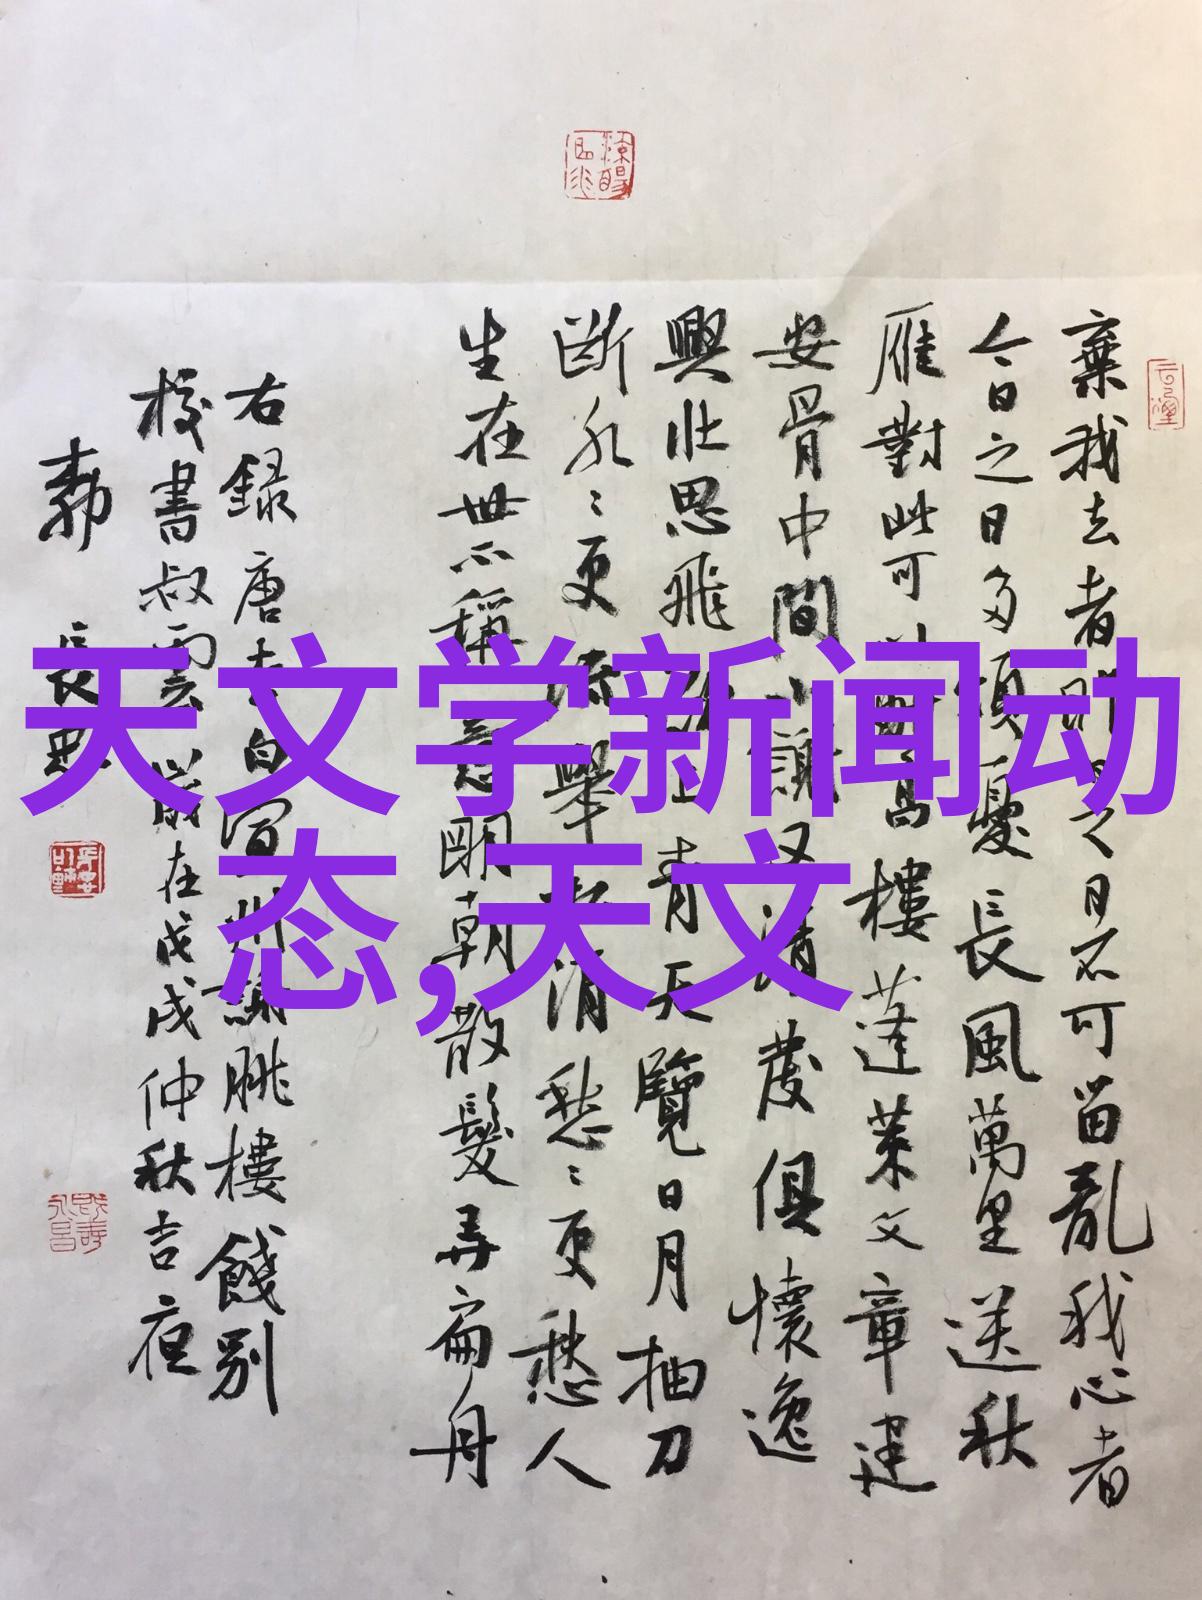 天文学新闻动
态,天文
棄我去者昨日之日不可留亂我心者
今日之日多煩憂長風萬里送秋
雁對此可以酣高樓蓬萊文章建
安骨中間小謝又清發俱懷逸
興壯思飛欲上青天覽日月抽刀
斷水〻更流舉杯消愁〻更愁人
生在世不稱意明朝散髮弄扁舟
右錄唐李白宣州謝朓樓餞別
校書叔雲歲在戊戌仲秋吉夜
長